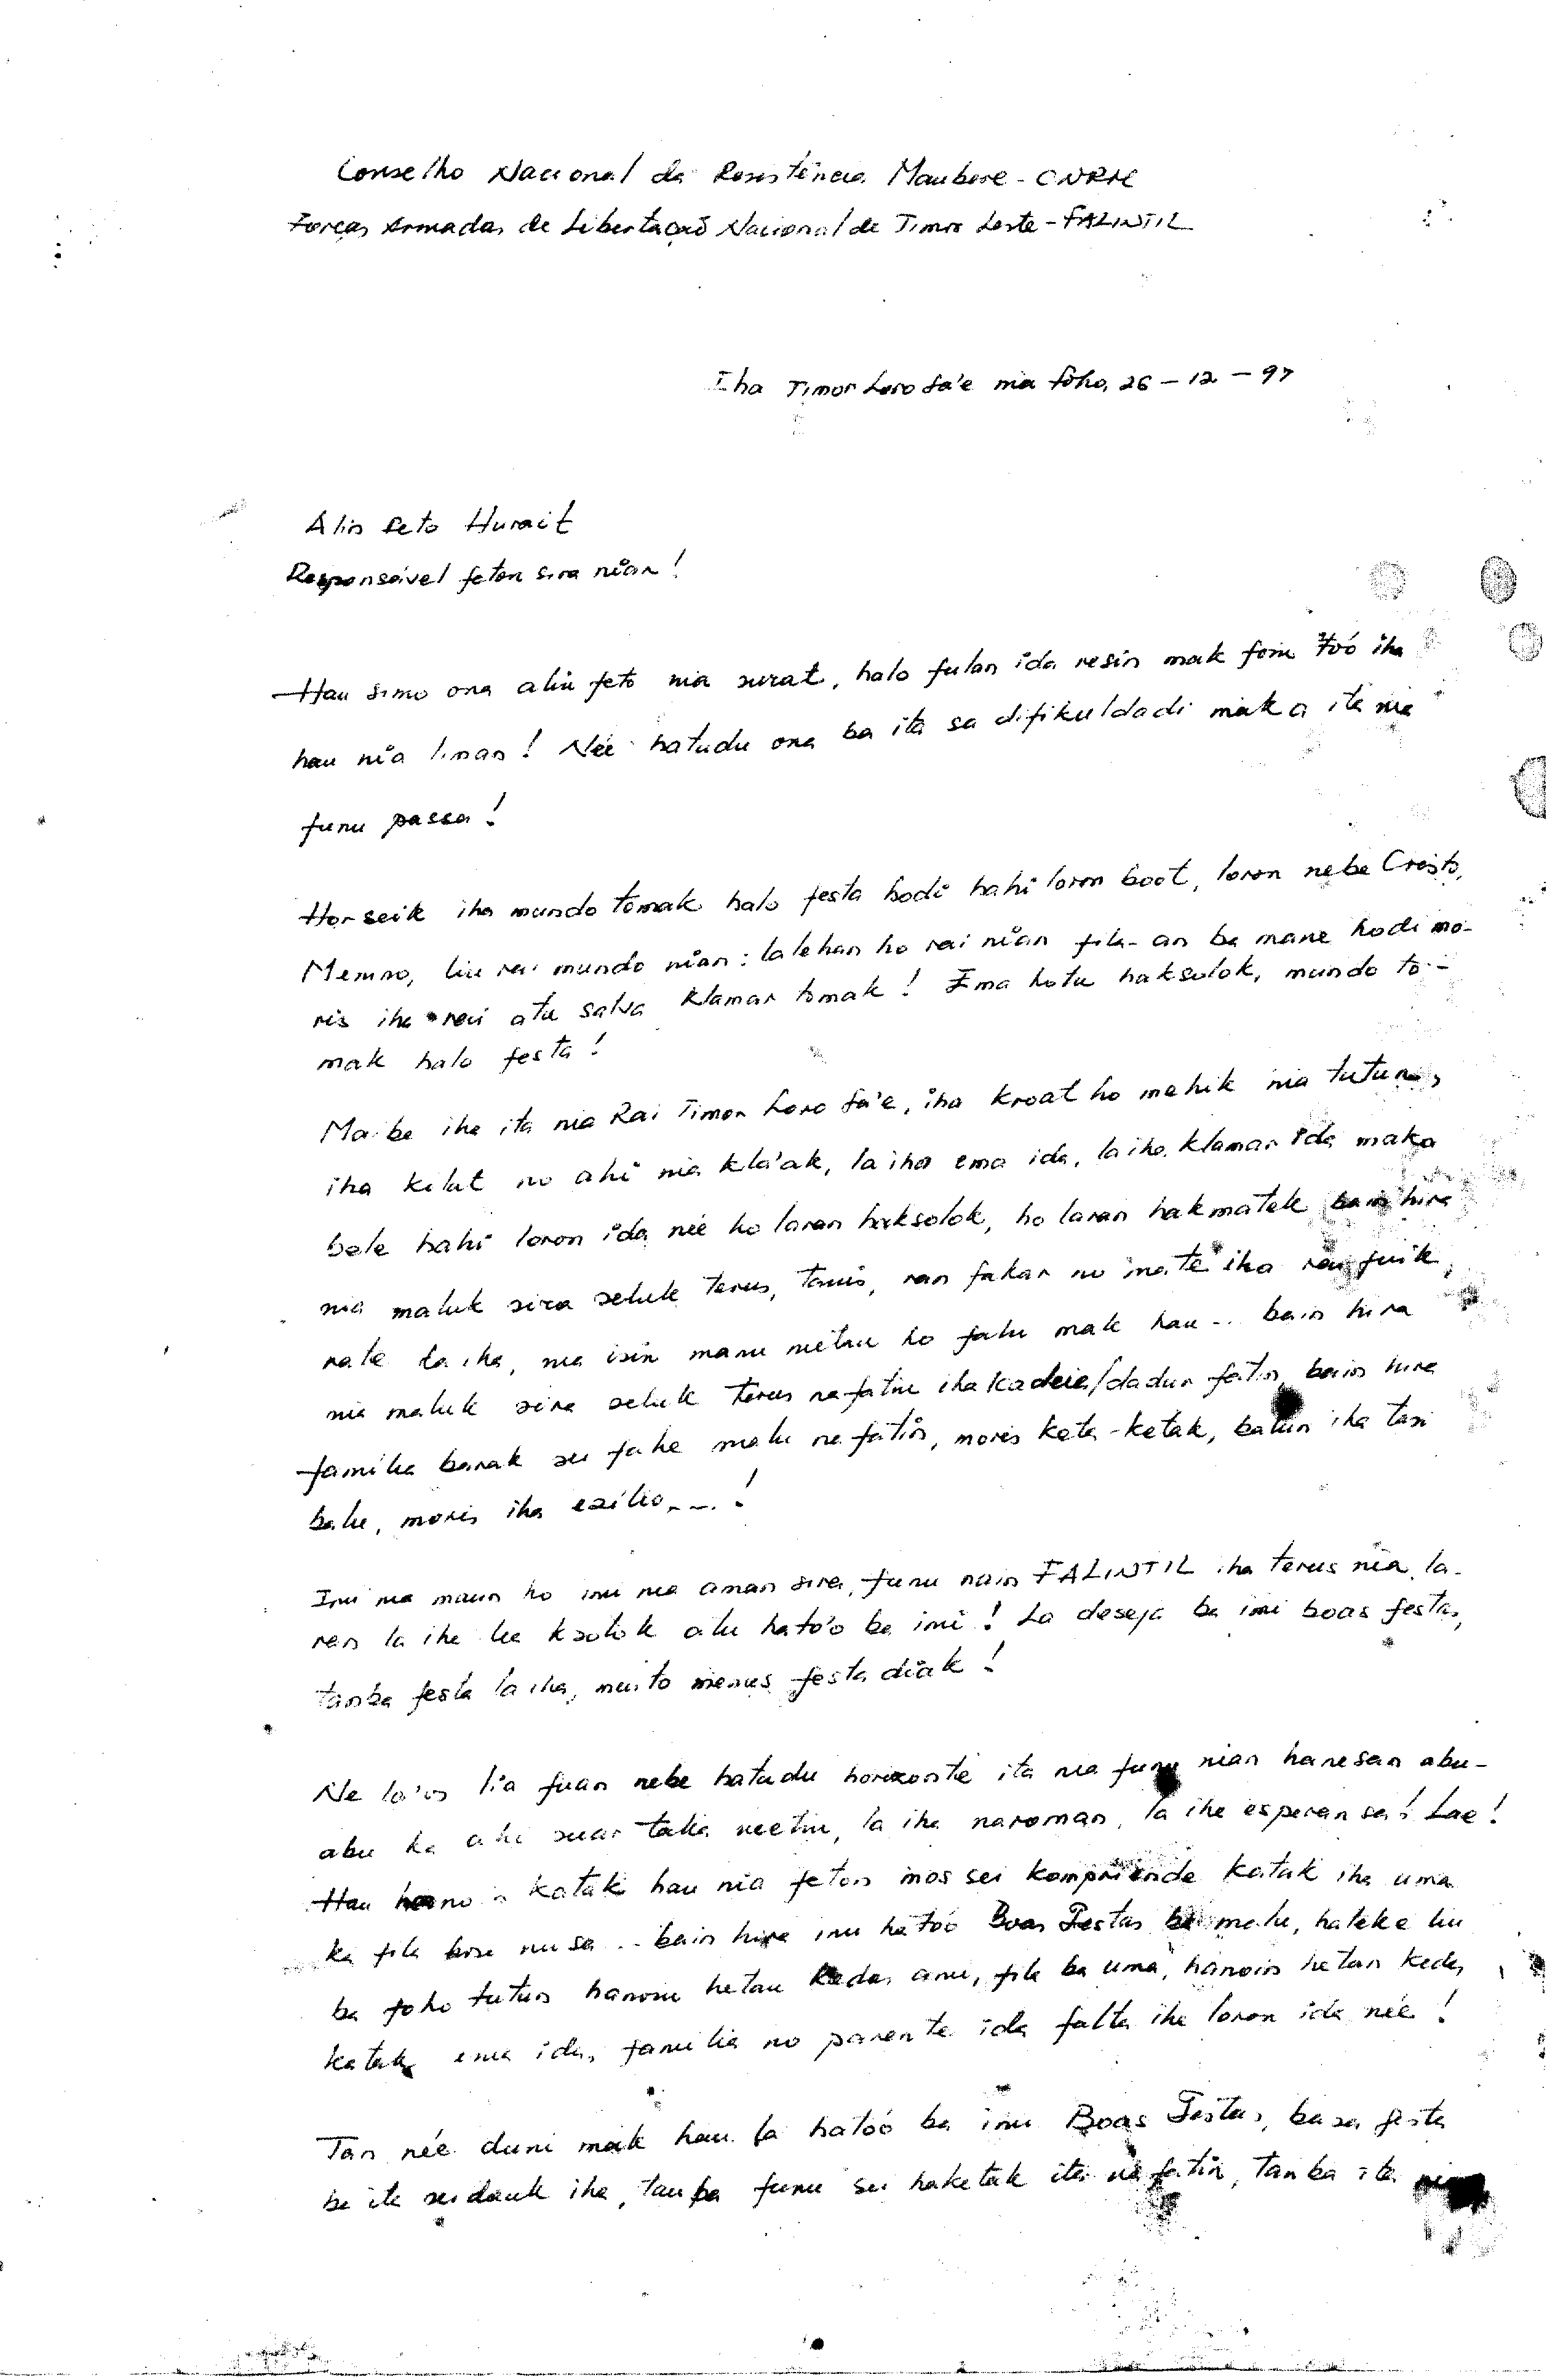 Conselho Nacional da Resistência Maubere - CNRM
Forças Armadas de Libertação Nacional de Timor Leste - FALINTIL
Iha Timor Loro Sa'e nia foho, 26 - 12 - 97
Alin feto Hurait
Responsável feton sira nian!
Hau simo ona alin feto nia surat, halo fulan ida resin mak foin to'ó iha
hau nia liman! Neé hatudu ona ba ita sa difikuldadi maka ita nia
funu passa!
Horseik iha mundo tomak halo festa hodi hahi loron boot, loron nebe Cristo,
Menino, liu rai mundo nian: lalehan ho rai nian fila-an ba mane hodi mo-
ris iha rai atu salva klamar tomak! Ema hotu haksolok, mundo to-
mak halo festa!
Maibe iha ita nia Rai Timor Loro Sa'e, iha kroat ho mehik nia tutun,
iha kilat no ahi nia kla'ak, la iha ema ida, la iha klamar ida maka
bele hahi loron ida neé ho laran haksolok, ho laran hakmatek bain hira
nia maluk sira seluk terus, tanis, ran fakar no mate iha rai fuik,
rate la iha, nia isin manu metan ho fahi mak han... bain hira
nia maluk sira seluk terus nafatin iha kadeia/dadur fatin, bain hira
familia barak sei fahe malu nafatin, moris keta-ketak, balun iha tasi
balu, moris iha exilio...!
Imi nia maun ho imi nia aman sira, funu nain FALINTIL iha terus nia la-
ran la iha lia ksolok atu hato'o ba imi! La deseja ba imi boas festas,
tanba festa la iha, muito menus festa diak!
Ne la'os lia fuan nebe hatudu horizonte ita nia funu nian hanesan abu-
abu ka ahi suar taka metin, la iha naroman, la iha esperansa! Lae!
Hau hanoin katak hau nia feton mos sei kompriende katak iha uma
ka fila hosi misa... bain hira imi hatoó Boas Festas ba malu, hateke liu
ba foho tutun hanoin hetan kedas ami, fila ba uma, hanoin hetan kedas
katak ema ida, familia no parente ida falta iha loron ida neé!
Tan neé duni mak hau la hatoó ba imi Boas Festas, basa festa
ba ita seidauk iha, tanba funu sei haketak ita nafatin, tanba ita